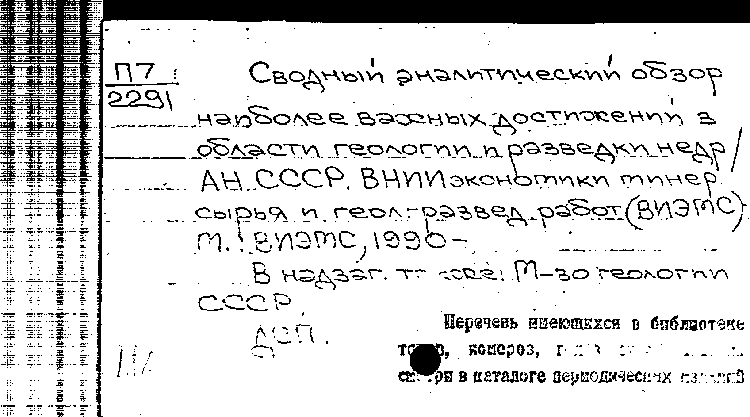 П7
2291
Сводный аналитический обзор
наиболее важных достижений в
области геологии и разведки недр /
АН СССР. ВНИИ экономики минер.
сырья и геол.-развед. работ (ВИЭМС)
М.: ВИЭМС, 1990-
В надзаг. М-во геологии
СССР.
ДСП.
Перечень имеющихся в библиотеке
томов, номеров,
смотри в каталоге периодических изданий